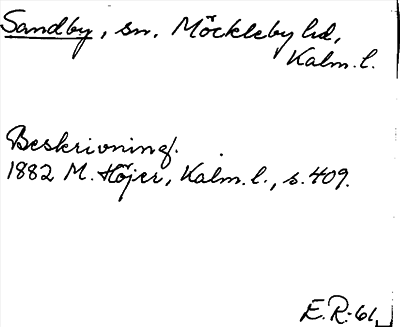 Sandby, sn. Möckleby hd,
Kalm. l.
Beskrivning.
1882 M. Höjer, Kalm. l., s. 409.
E. R. 61